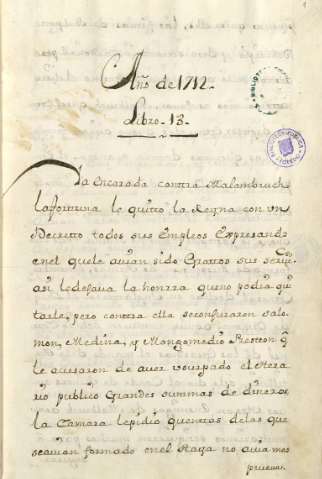 Año de 1712.
Libro. 13.
Ya encarada contra Malambruck
la fortuna le quitto la Reyna con un
Decretto todos sus Empleos Expresando
en el que le avian sido Grattos sus servi.os
asi le dejava la honrra que no podia qui
tarle, pero contra ella se conjuraron Salo-
mon, Medina, y Mongomedio Presten q.
le acusaron de aver usurpado el Hera
rio publico Grandes summas de dinero:
la Camara le pidio quentas delas que
se avian formado en el Raya no aviamos